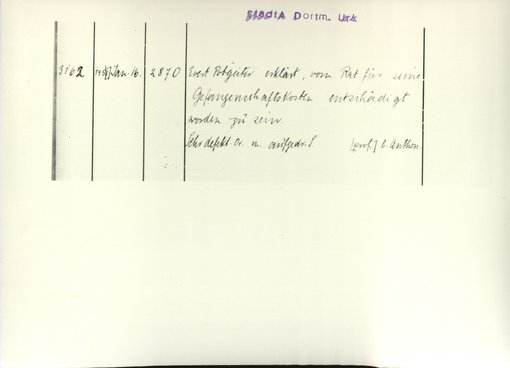 StadtA Dortm. Urk
3162 Jan. 16. 2870 Evert Potgeiter erklärt, vom Rat für seine
Gefangenschaftskosten entschädigt
worden zu sein.
Sehr defekt. Or. m. aufgedr. S. [prof.] b. Anthon.